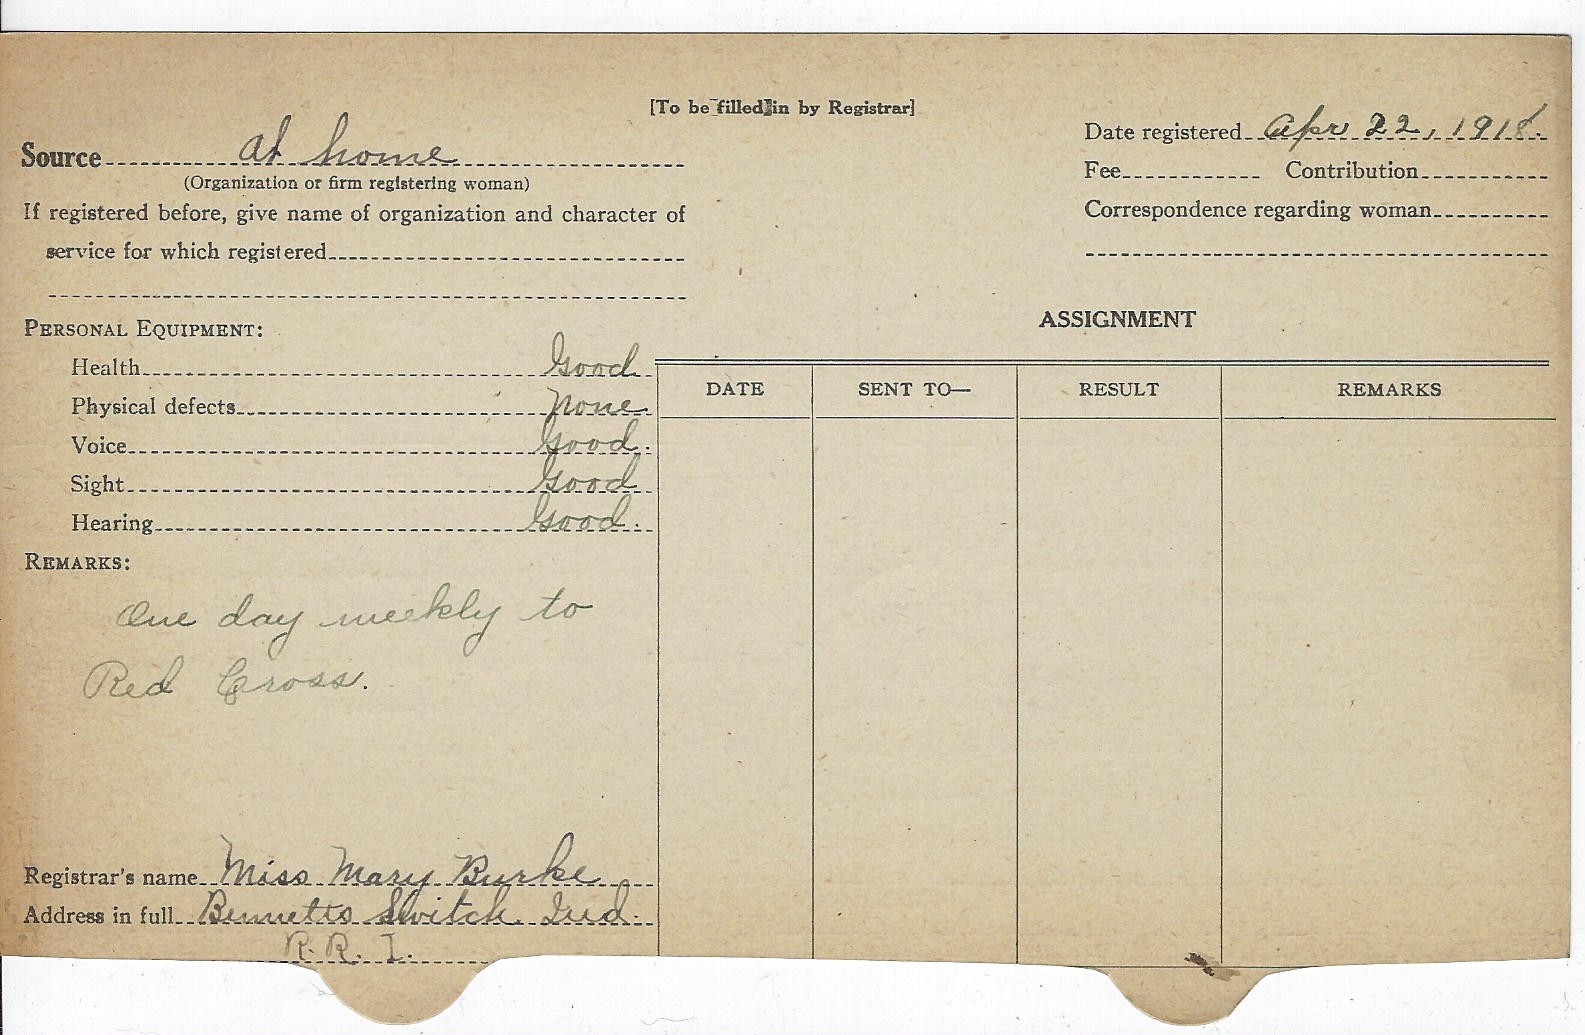 [To be filled in by Registrar]
Source at home
(Organization or firm registering woman)
If registered before, give name of organization and character of
service for which registered
Date registered Apr 22, 1918.
Fee Contribution
Correspondence regarding woman
PERSONAL EQUIPMENT:
Health Good
Physical defects none
Voice Good.
Sight Good
Hearing Good.
REMARKS:
One day weekly to
Red Cross.
Registrar's name Miss Mary Burke
Address in full Bennetts Switch Ind.
R. R. 1.
ASSIGNMENT
DATE SENT TO— RESULT REMARKS